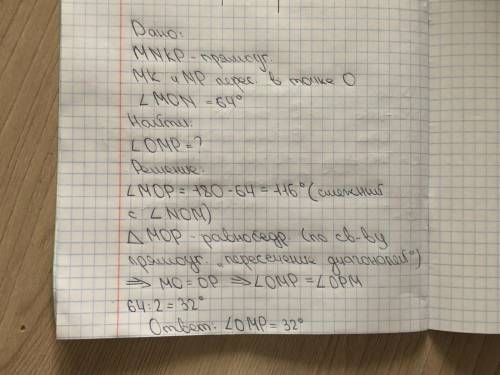 Дано:
MNKP - прямоуг.
MK и NP перес. в точке O
∠MON = 64°
Найти:
∠OMP = ?
Решение:
∠MOP = 180 - 64 = 116° (смежний
с ∠NON)
△ MOP - равнобедр (по св-ву
прямоуг. „пересечение диагоналей")
⇒ MO = OP ⇒ ∠OMP = ∠OPM
64 : 2 = 32°
Ответ: ∠OMP = 32°